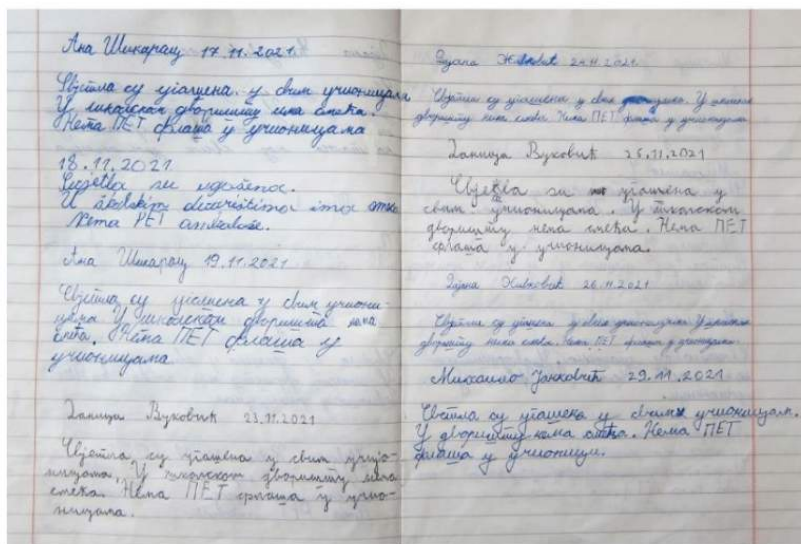 Ана Шикарац 17.11.2021.
Свјетла су угашена у свим учионицама
У школском дворишту нема смећа.
Нема ПЕТ флаша у учионицама
18.11.2021.
Svjetla su ugašena.
U školskim dvorištima ima smeća
Nema PET ambalaže.
Ана Шикарац 19.11.2021
Свјетла су угашена у свим учиони-
цама У школском дворишту нема
смећа. Нема ПЕТ флаша у
учионицама
Даница Вуковић 23.11.2021
Свјетла су угашена у свим учио-
ницама. У школском дворишту нема
смећа. Нема ПЕТ флаша у учио-
ницама.
24.11.2021.
Свјетла су угашена у свим У школском
дворишту нема смећа. Нема ПЕТ флаша у учионицама
Даница Вуковић 25.11.2021
Свјетла су угашена у
свим учионицама. У школском
дворишту нема смећа. Нема ПЕТ
флаша у учионицама.
26.11.2021
Свјетла су угашена у свим учионицама. У школском
дворишту нема смећа. Нема ПЕТ флаша у учионицама.
Михаило Јанковић 29.11.2021.
Свјетла су угашена у свим учионицам.
У дворишту нема смећа. Нема ПЕТ
флаша у учионици.